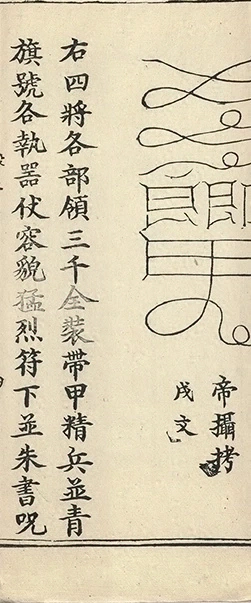 帝攝拷
戌文
右四將各部領三千全裝帶甲精兵並青
旗號各執器仗容貌猛烈符下並朱書呪